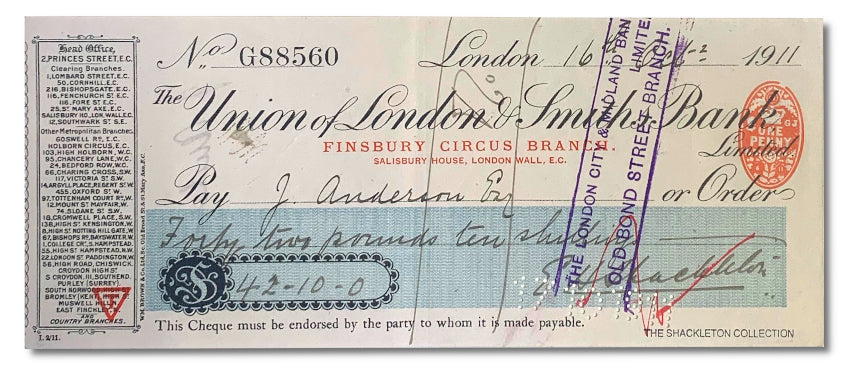 Head Office,
2, PRINCES STREET, E.C.
Clearing Branches.
1, LOMBARD STREET, E.C.
50, CORNHILL, E.C.
216, BISHOPSGATE, E.C.
116, FENCHURCH ST E.C.
116, FORE ST E.C.
25, ST MARY AXE, E.C.
SALISBURY HO, LON, WALL, E.C.
12, SOUTHWARK ST S.E.
Other Metropolitan Branches.
GOSWELL RD, E.C.
HOLBORN CIRCUS, E.C.
103, HIGH HOLBORN, W.C.
95, CHANCERY LANE, W.C.
24, BEDFORD ROW, W.C.
66, CHARING CROSS, S.W.
117, VICTORIA ST S.W.
14, ARGYLL PLACE, REGENT ST W.
455, OXFORD ST W.
97, TOTTENHAM COURT RD, W.
12, MOUNT ST MAYFAIR, W.
74, SLOANE ST S.W.
18, CROMWELL PLACE, S.W.
138, HIGH ST KENSINGTON, W.
8, HIGH ST NOTTING HILL GATE, W
67, BISHOPS RD, BAYSWATER, W.
1, COLLEGE CRT, S. HAMPSTEAD.
55, HIGH ST HAMPSTEAD, N.W.
22, LONDON ST PADDINGTON, W
56, HIGH ROAD, CHISWICK.
CROYDON HIGH ST
S CROYDON, 111, SOUTHEND.
PURLEY (SURREY).
SOUTH NORWOOD HIGH ST
BROMLEY (KENT) HIGH ST
MUSWELL HILL N.
EAST FINCHLEY
AND
COUNTRY BRANCHES.
I. 2/11.
No G88560
London 16th 1911
The Union of London & Smiths Bank
Limited
FINSBURY CIRCUS BRANCH,
SALISBURY HOUSE, LONDON WALL, E.C.
ONE
PENNY
Pay J. Anderson Esq or Order
Forty two pounds ten shillings
£ 42-10-0
E H Shackleton
THE LONDON CITY & MIDLAND BANK LIMITED
OLD BOND STREET BRANCH.
This Cheque must be endorsed by the party to whom it is made payable.
THE SHACKLETON COLLECTION